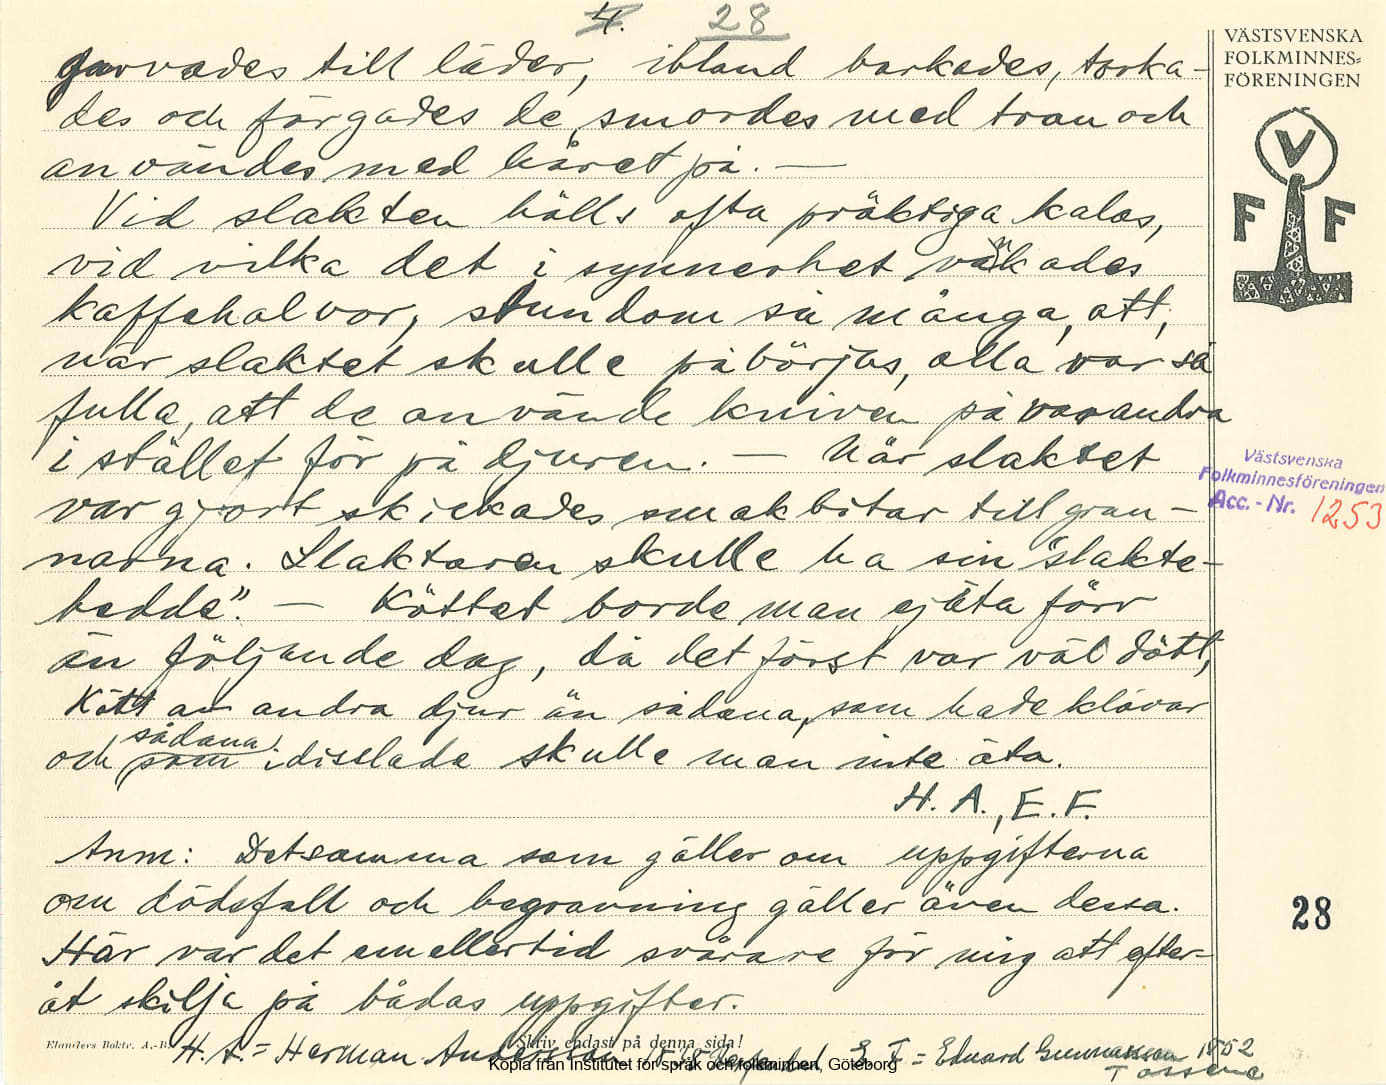 4. 28
VÄSTSVENSKA
FOLKMINNES=
FÖRENINGEN
V
F F
garvades till läder, ibland barkades, torka-
des och färgades de, smordes med tran och
användes med håret på. —
Vid slakten hölls ofta präktiga kalas,
vid vilka det i synnerhet vankades
kaffehalvor, stundom så många, att,
när slaktet skulle påbörjas, alla var så
fulla, att de använde kniven på varandra
i stället för på djuren. — När slaktet
var gjort skickades smakbitar till gran-
narna. Slaktaren skulle ha sin "slakte-
bedda". — Köttet borde man ej äta förr
än följande dag, då det först var väl dött,
Kött av andra djur än sådana, som hade klövar
och sådana som idisslade skulle man inte äta.
H. A., E. F.
Anm: Detsamma som gäller om uppgifterna
om dödsfall och begravning gäller även dessa.
Här var det emellertid svårare för mig att efter-
åt skilja på bådas uppgifter.
Västsvenska
Folkminnesföreningen
Acc. - Nr. 1253
28
Elanders Boktr. A.-B.
Skriv endast på denna sida!
H. A. = Herman Andersson E F = Eduard Gunnarsson 1852
Tossene
Kopia från Institutet för språk och folkminnen, Göteborg